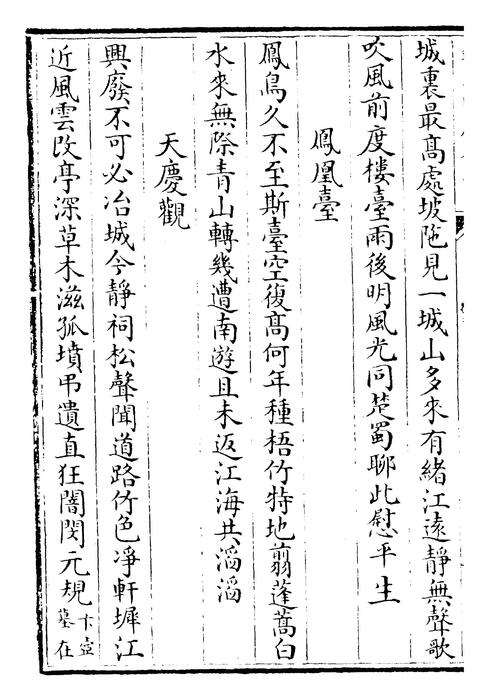 城裏最髙處坡陁見一城山多來有緒江遠靜無聲歌
吹風前度樓臺雨後明風光同楚蜀聊此慰平生
鳳凰臺
鳳鳥久不至斯臺空復髙何年種梧竹特地翦蓬蒿白
水來無際青山轉幾遭南遊且未返江海共滔滔
天慶觀
興廢不可必冶城今靜祠松聲聞道路竹色凈軒墀江
近風雲改亭深草木滋孤墳弔遺直狂闇閔元規卞壼
墓在